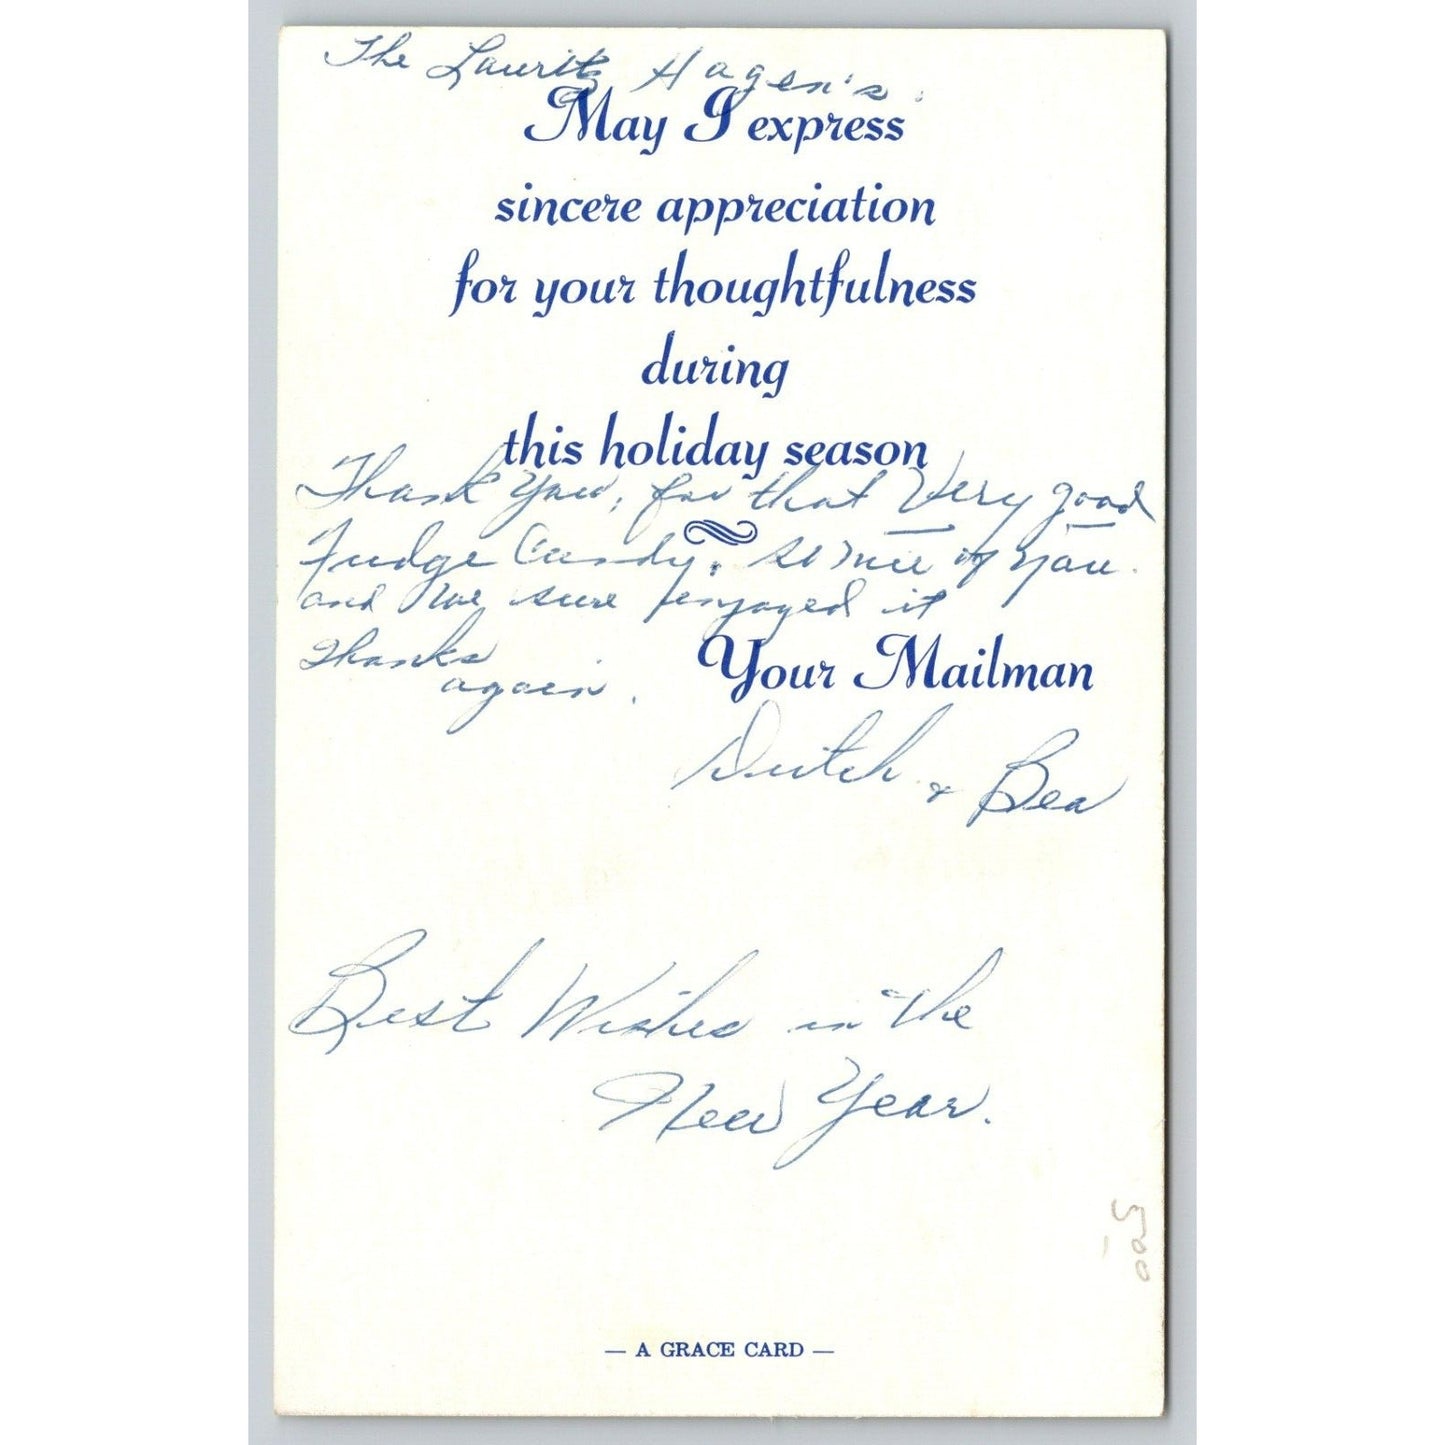 The Lauritz Hagen's.
May I express
sincere appreciation
for your thoughtfulness
during
this holiday season
Thank You, for that Very good
Fudge Candy, so nice of You.
and We sure enjoyed it
Thanks
again.
Your Mailman
Dutch & Bea
Best Wishes in the
New Year.
500
— A GRACE CARD —